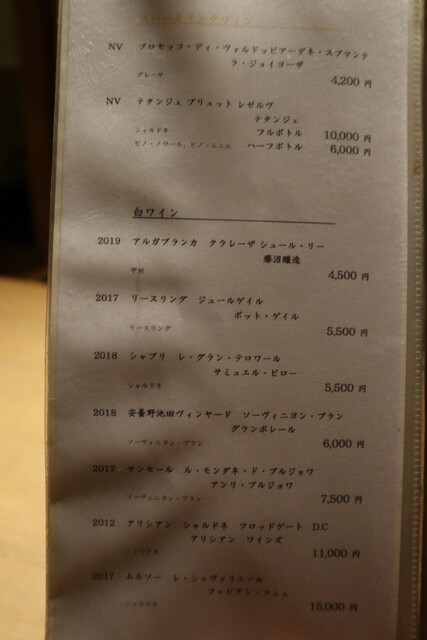 スパークリングワイン
NV プロセッコ・ディ・ヴァルドッビアーデネ・スプマンテ
ラ・ジョイヨーザ
グレーラ
4,200 円
NV テタンジェ ブリュット レゼルヴ
テタンジェ
シャルドネ フルボトル 10,000 円
ピノ・ノワール、ピノ・ムニエ ハーフボトル 6,000 円
白ワイン
2019 アルガブランカ クラレーザ シュール・リー
勝沼醸造
甲州
4,500 円
2017 リースリング ジュールゲイル
ボット・ゲイル
リースリング
5,500 円
2018 シャブリ レ・グラン・テロワール
サミュエル・ビロー
シャルドネ
5,500 円
2018 安曇野池田ヴィンヤード ソーヴィニヨン・ブラン
グランポレール
ソーヴィニヨン・ブラン
6,000 円
2017 サンセール ル・モンダネ・ド・ブルジョワ
アンリ・ブルジョワ
ソーヴィニヨン・ブラン
7,500 円
2012 アリシアン シャルドネ フロッドゲート D.C
アリシアン ワインズ
シャルドネ
11,000 円
2017 ムルソー レ・シュヴァリエール
ファビアン・コシュ
シャルドネ
15,000 円